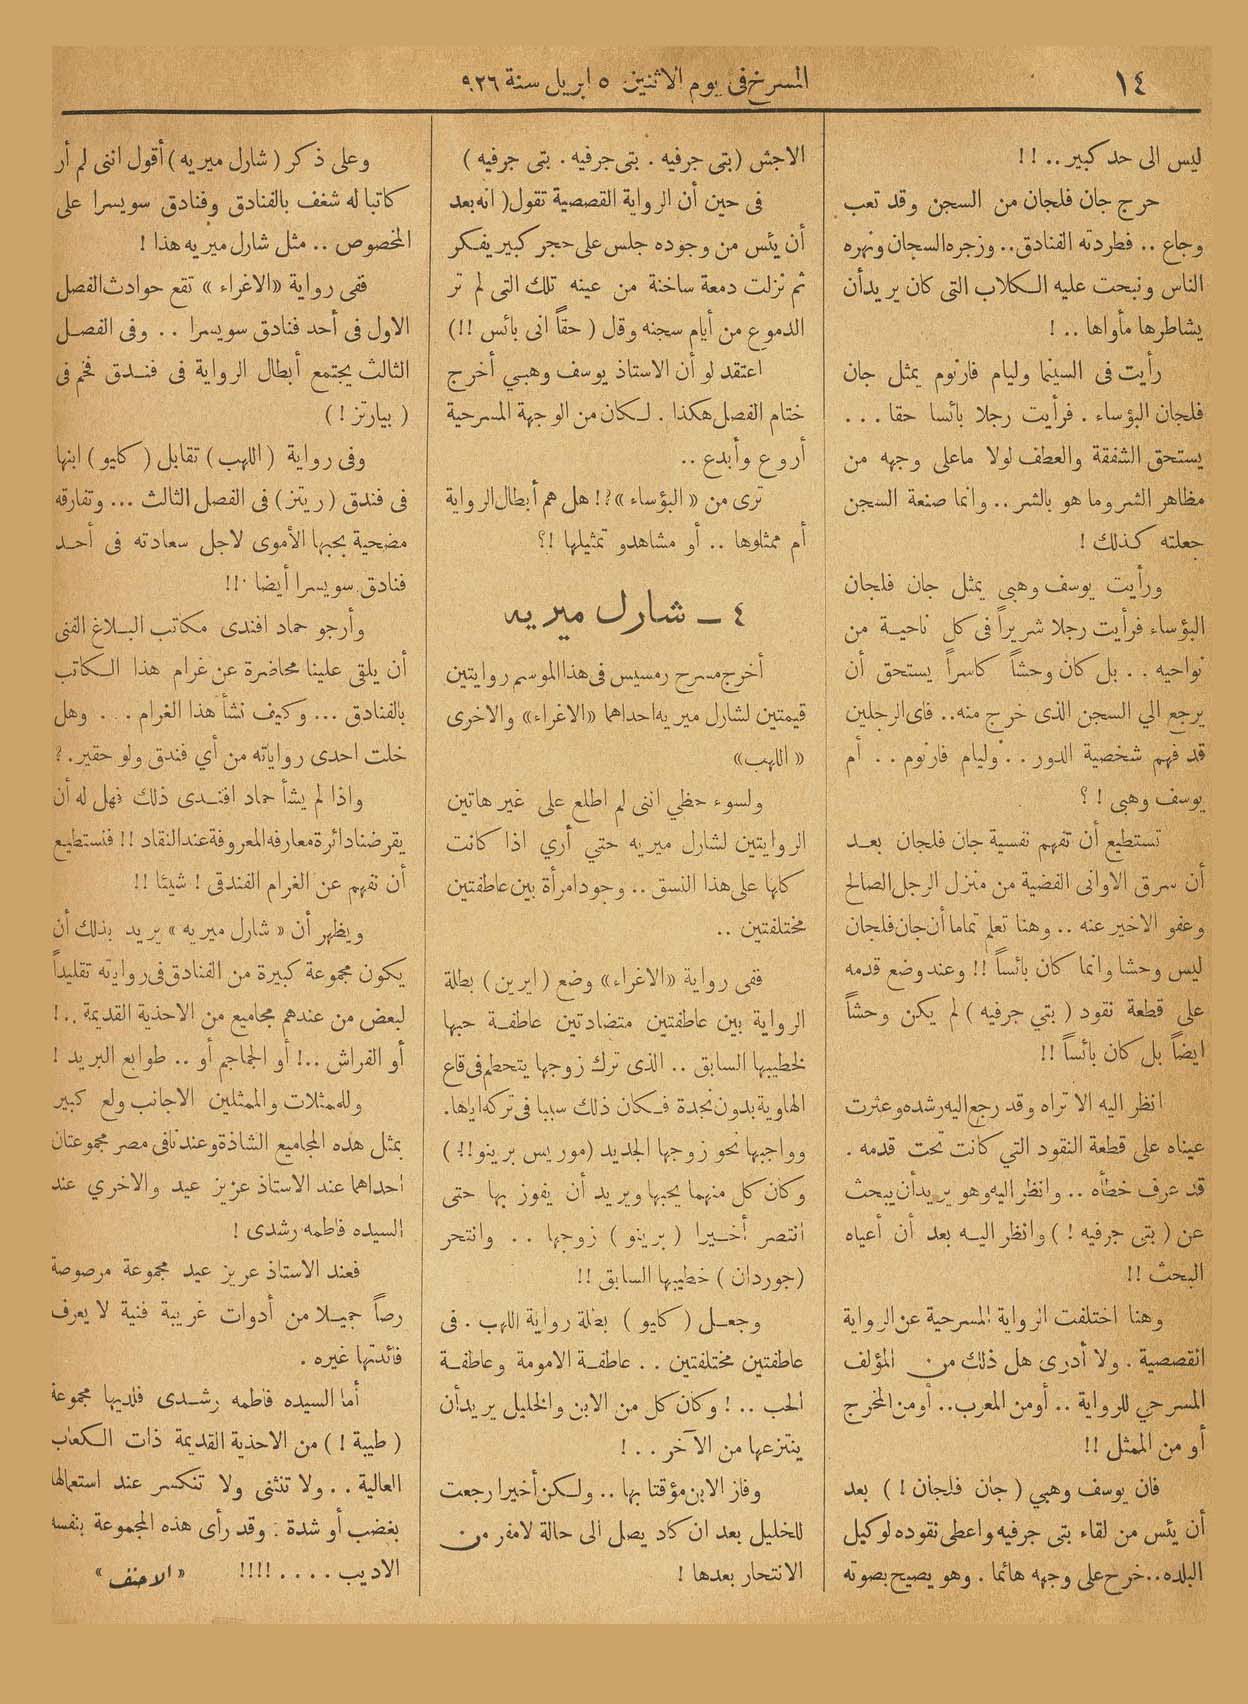 ١٤
المسرح في يوم الاثنين ٥ ابريل سنة ٩٢٦
ليس الى حد كبير .. !!
خرج جان فلجان من السجن وقد تعب
وجاع .. فطردته الفنادق .. وزجره السجان ونهره
الناس ونبحت عليه الكلاب التى كان يريد أن
يشاطرها مأواها .. !
رأيت فى السينما وليام فارنوم يمثل جان
فلجان البؤساء . فرأيت رجلا بائسا حقا ...
يستحق الشفقة والعطف لولا ما على وجهه من
مظاهر الشر وما هو بالشر .. وانما صنعة السجن
جعلته كذلك !
ورأيت يوسف وهبى يمثل جان فلجان
البؤساء فرأيت رجلا شريراً فى كل ناحية من
نواحيه .. بل كان وحشاً كاسراً يستحق أن
يرجع الي السجن الذى خرج منه .. فاى الرجلين
قد فهم شخصية الدور .. وليام فارنوم .. أم
يوسف وهبى ! ؟
تستطيع أن تفهم نفسية جان فلجان بعد
أن سرق الاوانى الفضية من منزل الرجل الصالح
وعفو الاخير عنه .. وهنا تعلم تماما أن جان فلجان
ليس وحشا وانما كان بائساً !! وعند وضع قدمه
على قطعة نقود ( بتي جرفيه ) لم يكن وحشاً
ايضاً بل كان بائساً !!
انظر اليه الا تراه وقد رجع اليه رشده وعثرت
عيناه على قطعة النقود التي كانت تحت قدمه .
قد عرف خطأه .. وانظر اليه وهو يريد أن يبحث
عن ( بتى جرفيه ! ) وانظر اليه بعد أن أعياه
البحث !!
وهنا اختلفت الرواية المسرحية عن الرواية
القصصية . ولا أدرى هل ذلك من المؤلف
المسرحي للرواية .. أو من المعرب .. أو من المخرج
أو من الممثل !!
فان يوسف وهبي ( جان فلجان ! ) بعد
أن يئس من لقاء بتى جرفيه واعطى نقوده لوكيل
البلده .. خرج على وجهه هائما . وهو يصيح بصوته
الاجش ( بتى جرفيه . بتى جرفيه . بتى جرفيه )
فى حين أن الرواية القصصية تقول ( انه بعد
أن يئس من وجوده جلس على حجر كبير يفكر
ثم نزلت دمعة ساخنة من عينه تلك التى لم تر
الدموع من أيام سجنه وقل ( حقاً انى بائس !! )
اعتقد لو أن الاستاذ يوسف وهبي أخرج
ختام الفصل هكذا . لكان من الوجهة المسرحية
أروع وأبدع ..
ترى من « البؤساء » ؟! هل هم أبطال الرواية
أم ممثلوها .. أو مشاهدو تمثيلها !؟
٤ ــ شارل ميريه
أخرج مسرح رمسيس فى هذا الموسم روايتين
قيمتين لشارل ميريه احداهما « الاغراء » والاخرى
« اللهب »
ولسوء حظي اننى لم اطلع على غير هاتين
الروايتين لشارل ميريه حتي أري اذا كانت
كلها على هذا النسق .. وجود امرأة بين عاطفتين
مختلفتين ..
ففى رواية « الاغراء » وضع ( ايرين ) بطلة
الرواية بين عاطفتين متضادتين عاطفة حبها
لخطيبها السابق .. الذى ترك زوجها يتحطم فى قاع
الهاوية بدون نجدة فكان ذلك سببا فى تركه اياها .
وواجبها نحو زوجها الجديد ( موريس برينو !! )
وكان كل منهما يحبها ويريد أن يفوز بها حتى
انتصر أخيرا ( برينو ) زوجها .. وانتحر
( جوردان ) خطيبها السابق !!
وجعل ( كايو ) بطلة رواية اللهب . فى
عاطفتين مختلفتين .. عاطفة الامومة وعاطفة
الحب .. ! وكان كل من الابن والخليل يريد أن
ينتزعها من الآخر .. !
وفاز الابن مؤقتا بها .. ولكن أخيرا رجعت
للخليل بعد ان كاد يصل الى حالة لامفر من
الانتحار بعدها !
وعلى ذكر ( شارل ميريه ) أقول اننى لم أر
كاتبا له شغف بالفنادق وفنادق سويسرا على
الخصوص .. مثل شارل ميريه هذا !
ففى رواية « الاغراء » تقع حوادث الفصل
الاول فى أحد فنادق سويسرا .. وفى الفصل
الثالث يجتمع أبطال الرواية فى فندق فخم فى
( بيارتز ! )
وفى رواية ( اللهب ) تقابل ( كايو ) ابنها
فى فندق ( ريتز ) فى الفصل الثالث ... وتفارقه
مضحية بحبها الأموى لاجل سعادته فى أحد
فنادق سويسرا أيضا !!!
وأرجو حماد افندى مكاتب البلاغ الفنى
أن يلقى علينا محاضرة عن غرام هذا الكاتب
بالفنادق ... وكيف نشأ هذا الغرام ... وهل
خلت احدى رواياته من أي فندق ولو حقير . ?
واذا لم يشأ حماد افندى ذلك فهل له أن
يقرضنا دائرة معارفه المعروفة عند النقاد !! فنستطيع
أن نفهم عن الغرام الفندقى ! شيئا !!
ويظهر أن « شارل ميريه » يريد بذلك أن
يكون مجموعة كبيرة من الفنادق فى رواياته تقليداً
لبعض من عندهم مجاميع من الاحذية القديمة .. !
أو الفراش .. ! أو الجماجم أو .. طوابع البريد !
وللممثلات والممثلين الاجانب ولع كبير
بمثل هذه المجاميع الشاذة وعندنا فى مصر مجموعتان
احداهما عند الاستاذ عزيز عيد والاخري عند
السيده فاطمه رشدى !
فعند الاستاذ عزيز عيد مجموعة مرصوصة
رصاً جميلا من أدوات غريبة فنية لا يعرف
فائدتها غيره .
أما السيده فاطمه رشدى فلديها مجموعة
( طيبة ! ) من الاحذية القديمة ذات الكعاب
العالية .. ولا تنثنى ولا تنكسر عند استعمالها
بغضب أو شدة . وقد رأى هذه المجموعة بنفسه
الاديب .... !!!! « الاحنف »